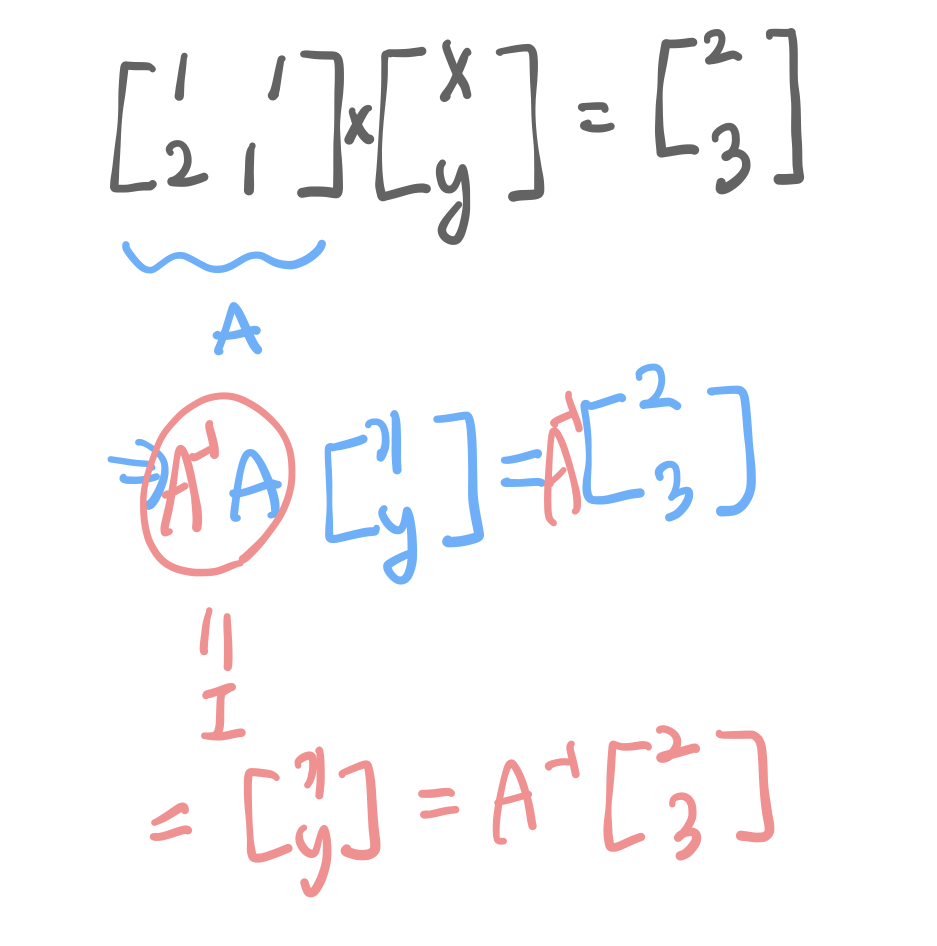 [1 1; 2 1] × [x; y] = [2; 3]
A
⇒ A⁻¹ A [x; y] = A⁻¹ [2; 3]
=
I
= [x; y] = A⁻¹ [2; 3]